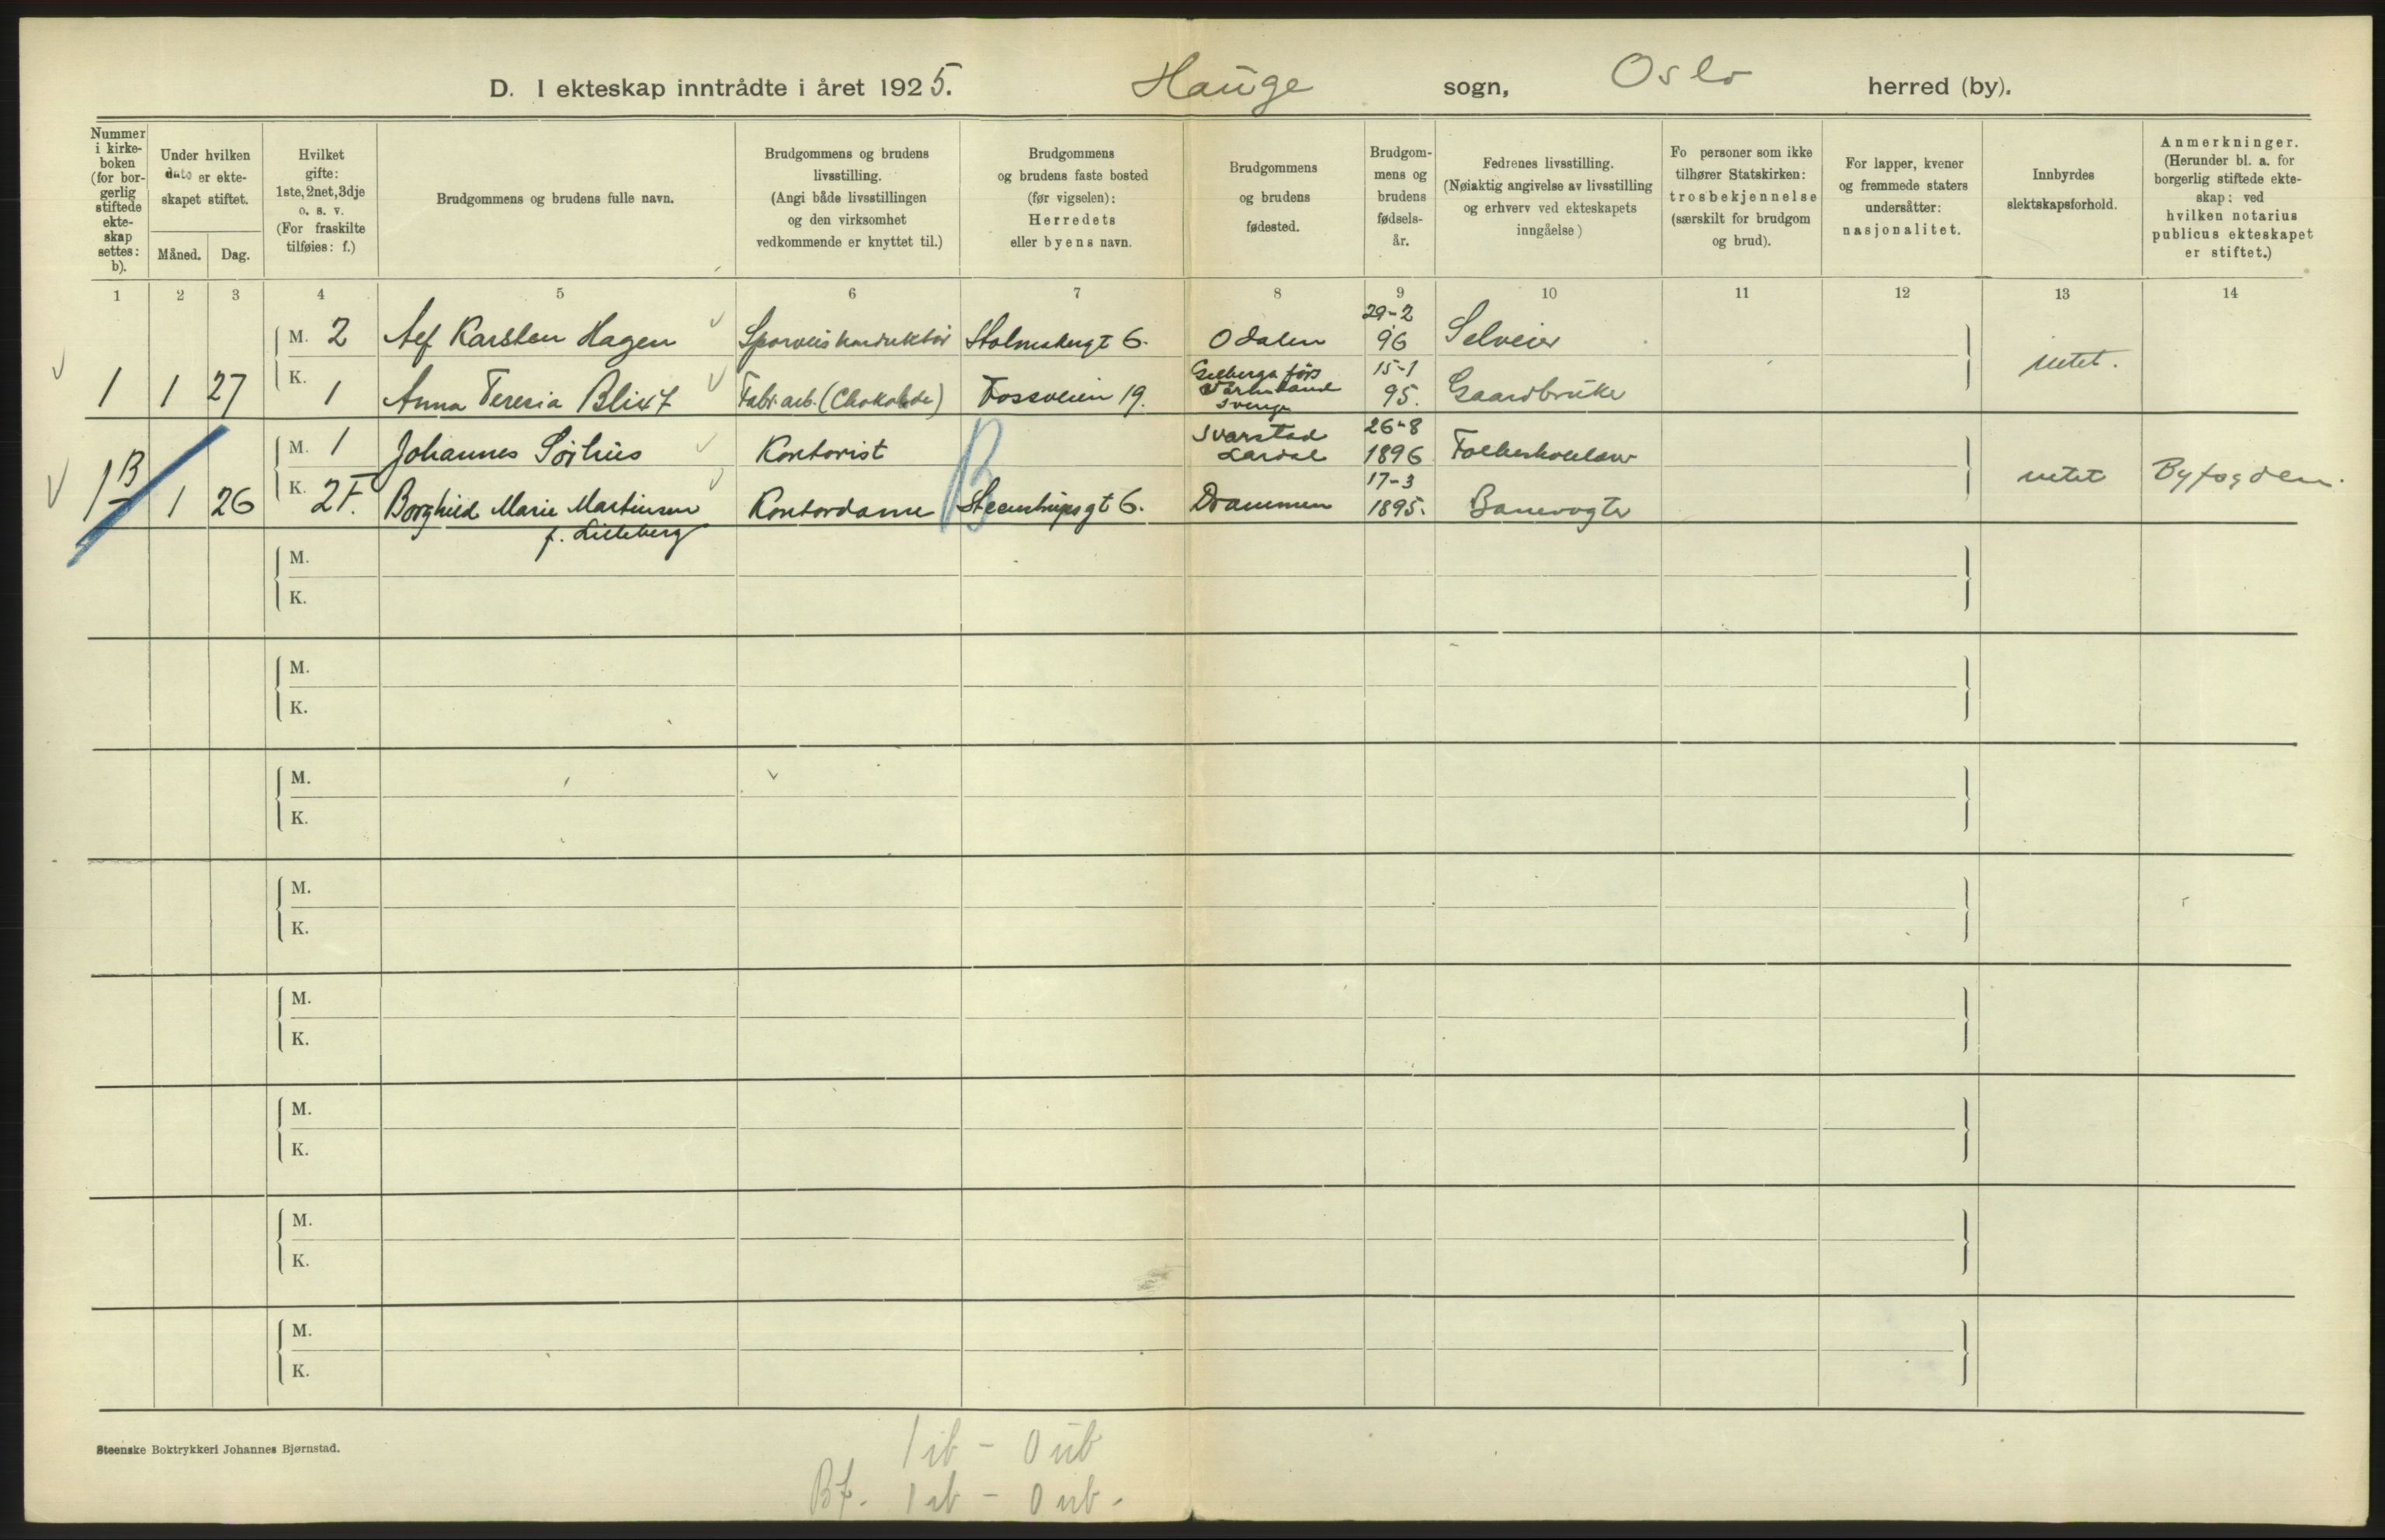 D. I ekteskap inntrådte i året 1925. Hauge sogn, Oslo herred (by).
Nummer i kirke-boken (for bor-gerlig stiftede ekte-skap settes: b).
Under hvilken dato er ekte-skapet stiftet.
Måned. Dag.
Hvilket gifte: 1ste, 2net, 3dje o. s. v. (For fraskilte tilføies: f.)
Brudgommens og brudens fulle navn.
Brudgommens og brudens livsstilling. (Angi både livsstillingen og den virksomhet vedkommende er knyttet til.)
Brudgommens og brudens faste bosted (før vigselen): Herredets eller byens navn.
Brudgommens og brudens fødested.
Brudgom-mens og brudens fødsels-år.
Fedrenes livsstilling. (Nøiaktig angivelse av livsstilling og erhverv ved ekteskapets inngåelse)
Fo personer som ikke tilhører Statskirken: trosbekjennelse (særskilt for brudgom og brud).
For lapper, kvener og fremmede staters undersåtter: nasjonalitet.
Innbyrdes slektskapsforhold.
Anmerkninger. (Herunder bl. a. for borgerlig stiftede ekte-skap: ved hvilken notarius publicus ekteskapet er stiftet.)
1 2 3 4 5 6 7 8 9 10 11 12 13 14
29-2
M. 2 Alf Karsten Hagen Sporveiskonduktør 6. Odalen 96 Selveier
intet.
15-1
1 1 27 K. 1 Anna Teresia Blixt Fabr.arb. (Chokolade) Fossveien 19. Värmland Sverige 95. Gaardbruker
26-8
M. 1 Johannes Sørhus Kontorist Svarstad Lardal 1896
B
17-3
1 B 1 26 K. 2 F. Borghild Marie Martinsen Kontordame Steenstrupsgt 6. Drammen 1895. Banevogter intet Byfogden.
f. Lilleberg
M.
K.
M.
K.
M.
K.
M.
K.
M.
K.
M.
K.
M.
K.
M.
K.
Steenske Boktrykkeri Johannes Bjørnstad.
1 ib - 0 ub
Bf. 1 ib - 0 ub.